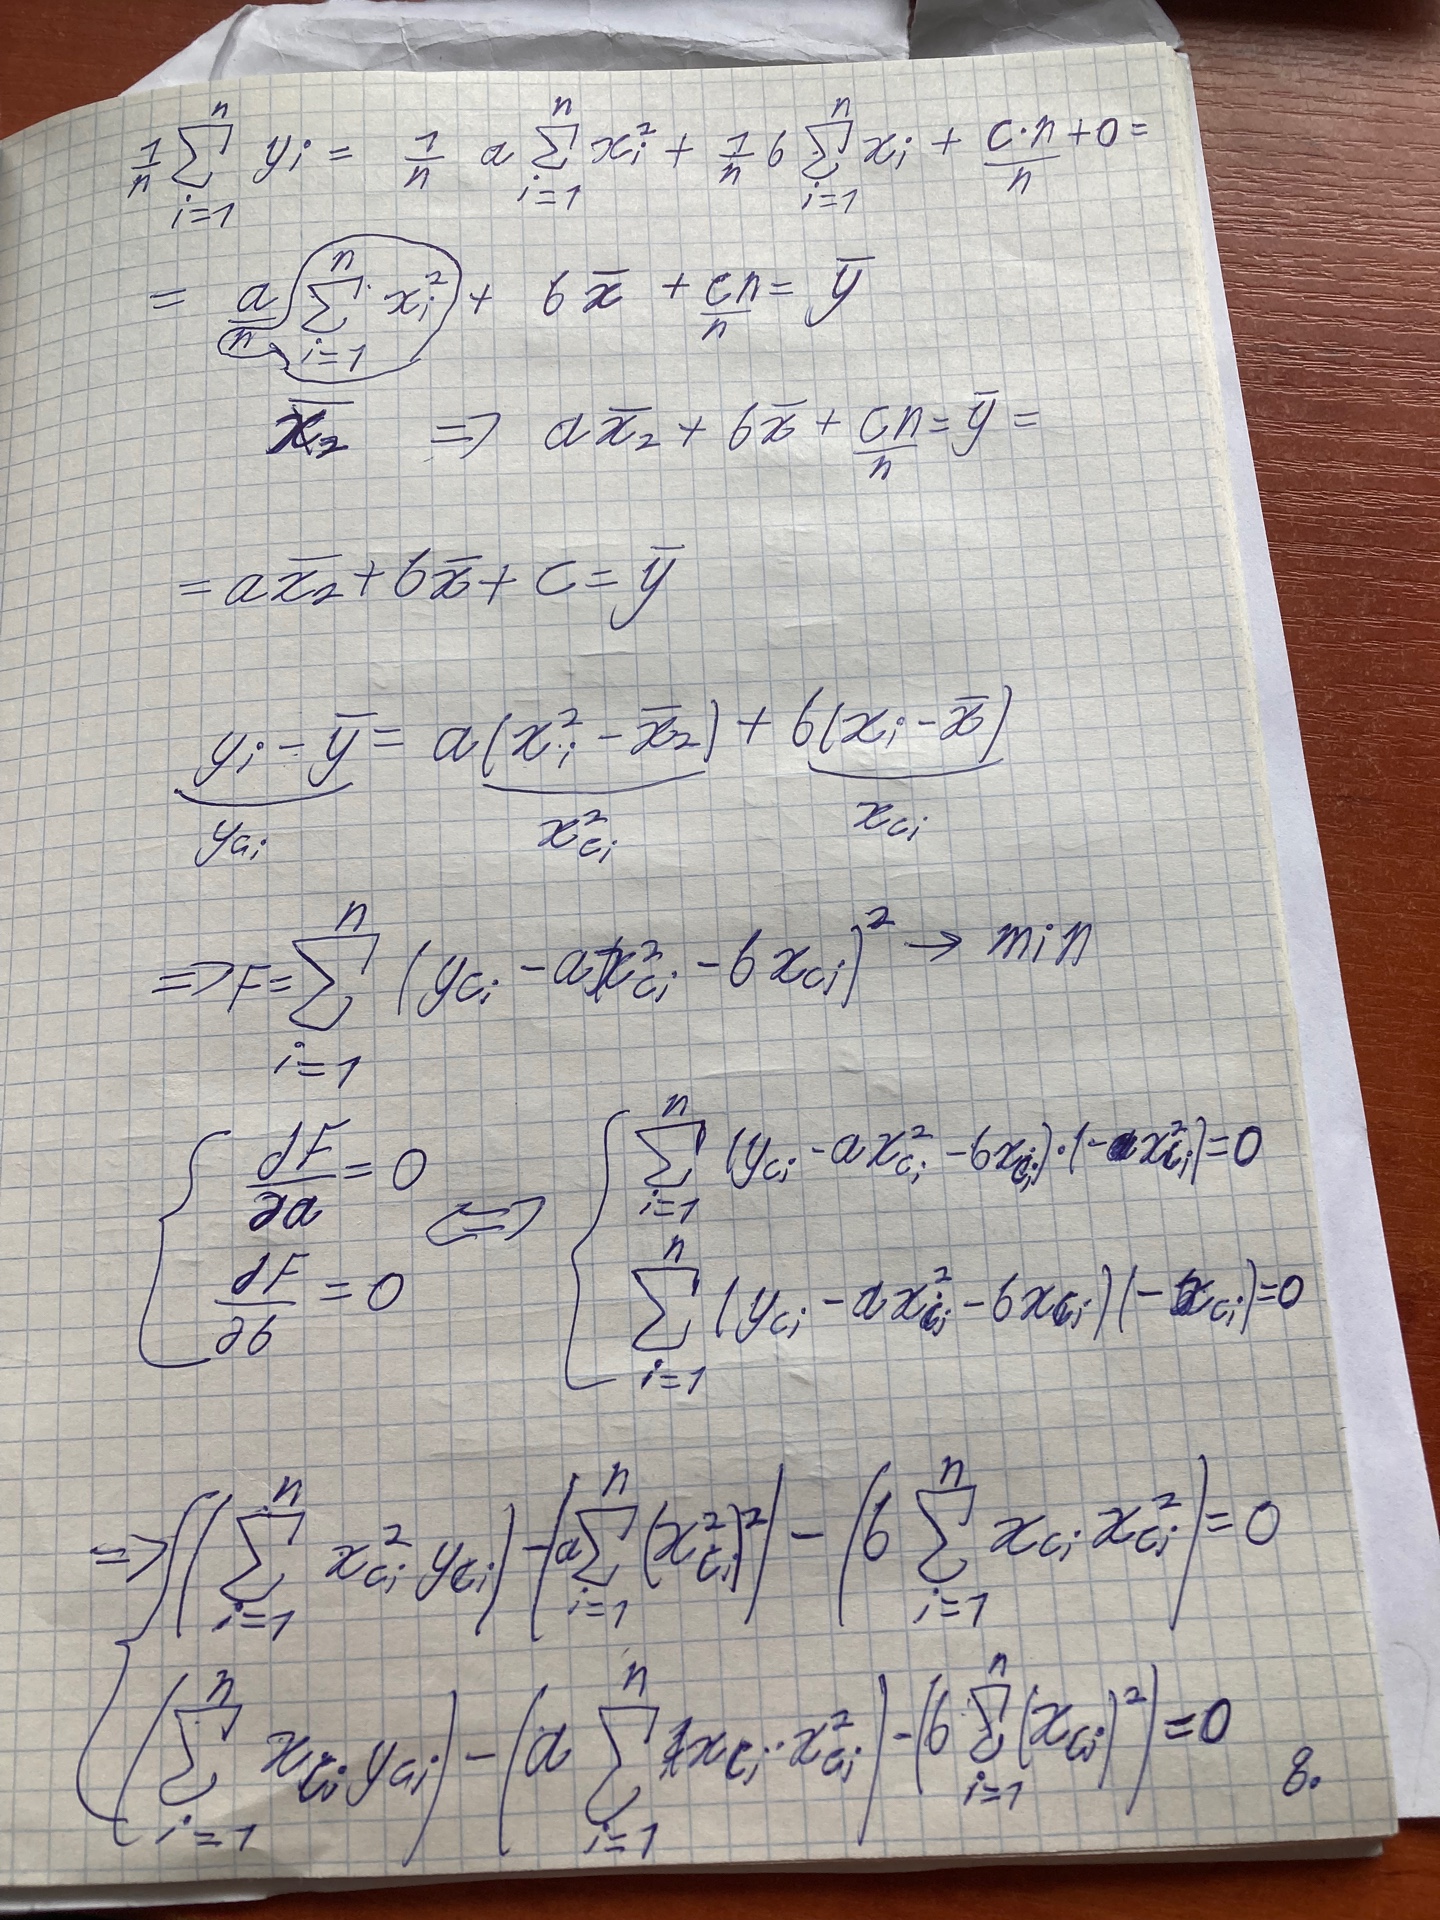 1/n ∑_{i=1}^{n} y_i = 1/n a ∑_{i=1}^{n} x_i^2 + 1/n b ∑_{i=1}^{n} x_i + c·n/n + 0 =
= a/n ∑_{i=1}^{n} x_i^2 + b x̄ + cn/n = ȳ
x̄_2 => a x̄_2 + b x̄ + cn/n = ȳ =
= a x̄_2 + b x̄ + c = ȳ
y_i - ȳ = a(x_i^2 - x̄_2) + b(x_i - x̄)
y_{ci} x_{ci}^2 x_{ci}
=> F = ∑_{i=1}^{n} (y_{ci} - a x_{ci}^2 - b x_{ci})^2 → min
{ ∂F/∂a = 0 <=> { ∑_{i=1}^{n} (y_{ci} - a x_{ci}^2 - b x_{ci})·(- x_{ci}^2) = 0
∂F/∂b = 0 ∑_{i=1}^{n} (y_{ci} - a x_{ci}^2 - b x_{ci})(- x_{ci}) = 0
=> { (∑_{i=1}^{n} x_{ci}^2 y_{ci}) - (a ∑_{i=1}^{n} (x_{ci}^2)^2) - (b ∑_{i=1}^{n} x_{ci} x_{ci}^2) = 0
(∑_{i=1}^{n} x_{ci} y_{ci}) - (a ∑_{i=1}^{n} x_{ci} · x_{ci}^2) - (b ∑_{i=1}^{n} (x_{ci})^2) = 0
8.